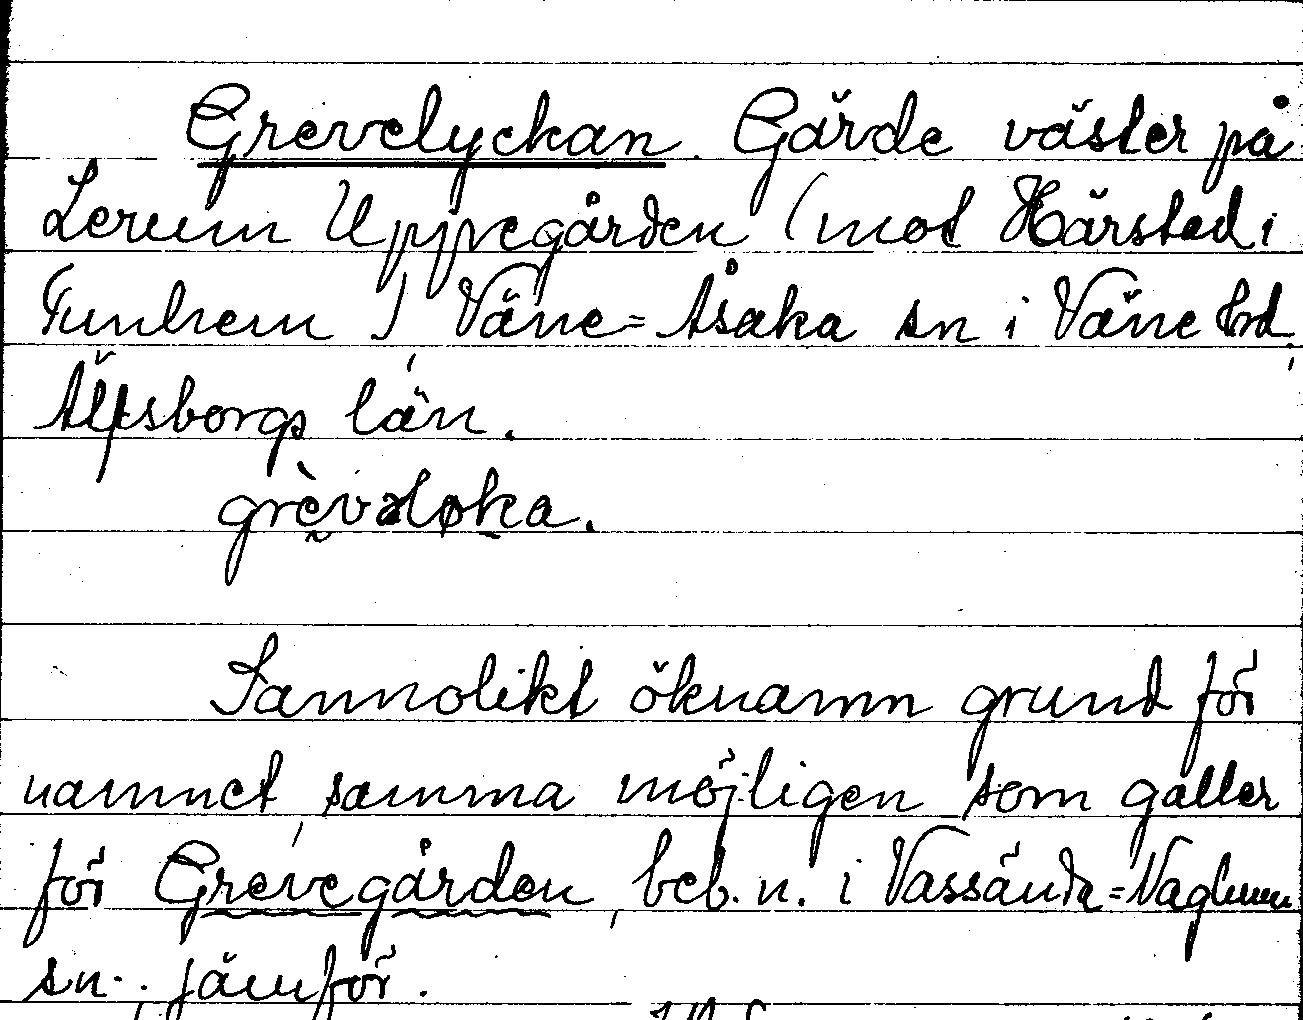 Grevelyckan. Gärde väster på
Lerum Uppegården (mot Härstad i
Funhem) Väne=Åsaka sn i Väne hd,
Älfsborgs län.
grèvəløka.
Sannolikt öknamn grund för
namnet, samma möjligen som gäller
för Grevegården, beb. n. i Vassända=Naglum
sn.; jämför.